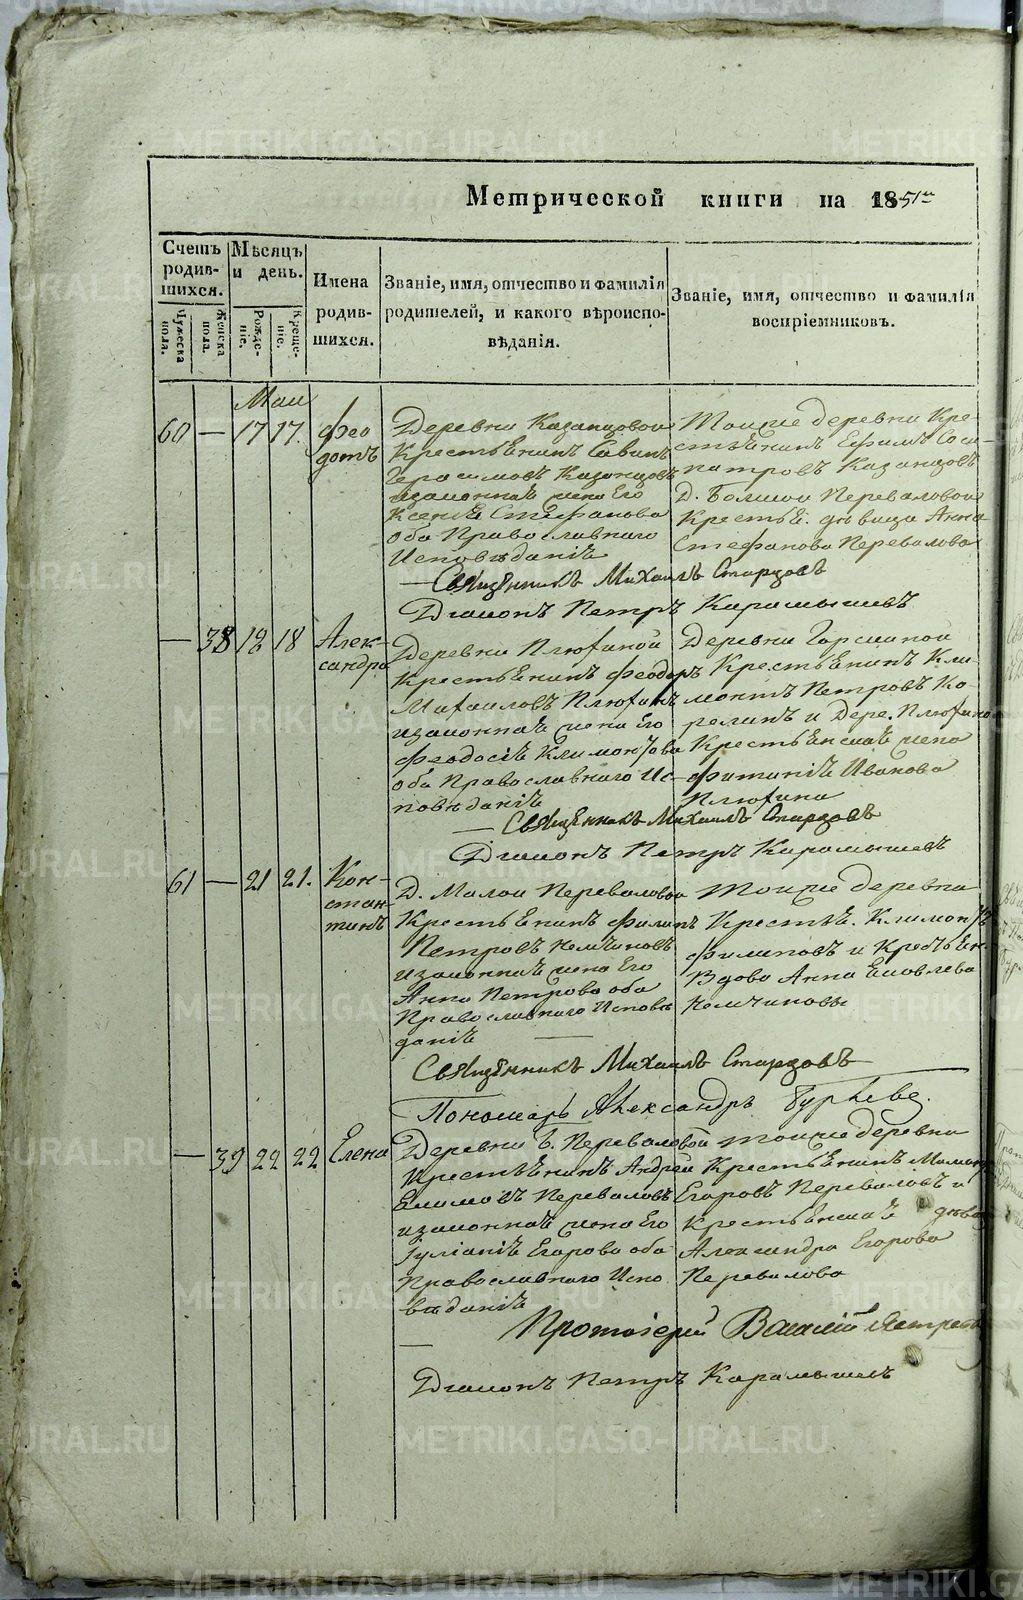 Метрической книги на 1851й
Счетъ родив-шихся.
Мужеска пола.
Женска пола.
Мѣсяцъ и день.
Рожде-ніе.
Креще-ніе.
Имена родив-шихся.
Званіе, имя, отчество и фамилія
родителей, и какого вѣроиспо-
вѣданія.
Званіе, имя, отчество и фамилія
воспріемниковъ.
Маи
60 — 17 17.
Фео
дотъ
Деревни Казанцовой
Крестьѣнинъ Савинъ
Герасимовъ Казонцовъ
изаконнаѣ жена Его
Ксенѣѣ Стефанова
оба Православнаго
Исповѣданіѣ
Тоиже деревни Кре-
стьѣнинъ Ефимъ Соси-
патровъ Казанцовъ
Д. Болшои Переваловой
Крестьѣ. дѣвица Анна
Стефанова Перевалова
— Свѧщѣнникъ Михаилъ Старцовъ
Диаконъ Петръ Карамышевъ
— 38 18 18
Алек-
сандра
Деревни Плюхиной
Крестьѣнинъ Феодоръ
Михаиловъ Плюхинъ
изаконнаѣ жена Его
Феодосіѣ Климонтова
оба Православнаго Ис-
повѣданіѣ
Деревни
Крестьѣнинъ Кли-
монтъ Петровъ Ко-
релинъ и Дере. Плюхино
Крестьѣнскаѣ жена
Фитиніѣ Иванова
Плюхина
— Свѧщѣнникъ Михаилъ Старцовъ
Диаконъ Петръ Карамышевъ
61 — 21 21.
Кон-
стан-
тинъ
Д. Малои Переваловои
Крестьѣнинъ Филипъ
Петровъ Немчиновъ
изаконнаѣ жена Его
Анна Петрова оба
Православнаго Исповѣ
даніѣ
Тоиже деревни
Крестьѣ. Климонтъ
Филиповъ и Крестьѣн.
Вдова Анна Ѣковлева
Немчиновы
Свѧщѣнникъ Михаилъ Старцовъ
Пономарь Александръ Гурьевъ.
— 39 22 22
Елена
Деревни Б. Переваловой
Крестьѣнинъ Андреи
Екимовъ Переваловъ
изаконнаѣ жена Его
Іуліаніѣ Егорова оба
Православнаго Испо
вѣданіѣ
Тоиже деревни
Крестьѣнинъ
Егоровъ Переваловъ и
Крестьѣнскаѣ дѣвка
Александра Егорова
Перевалова
Протоіерей Василій
Диаконъ Петръ Карамышевъ
METRIKI.GASO-URAL.RU